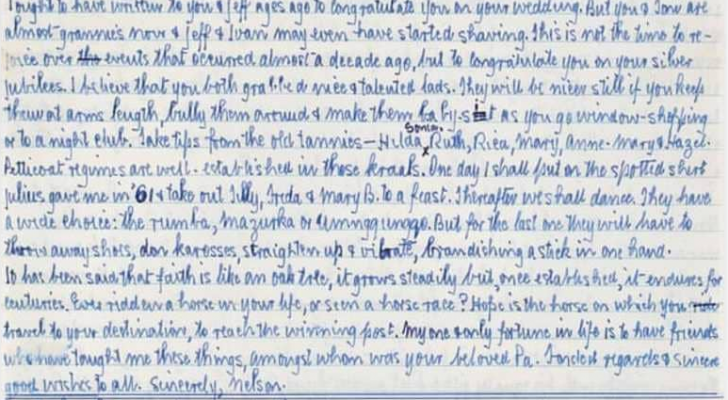 I ought to have written to you & Jeff ages ago to congratulate you on your wedding. But you & Tony are
almost grannies now & Jeff & Ivan may even have started shaving. This is not the time to re-
joice over the events that occurred almost a decade ago, but to congratulate you on your silver
jubilees. I believe that you both grabbed nice & talented lads. They will be nicer still if you keep
them at arms length, bully them around & make them baby-sit as you go window-shopping
or to a night club. Take tips from the old tannies – Hilda, Sonia, Ruth, Rica, Mary, Anne-Mary & Hazel.
Petticoat regimes are well-established in those kraals. One day I shall put on the spotted shirt
Julius gave me in '61 & take out Tilly, Freda & Mary B. to a feast. Thereafter we shall dance. They have
a wide choice: the rumba, mazurka or umngqungqo. But for the last one they will have to
throw away shoes, don karosses, straighten up & vibrate, brandishing a stick in one hand.
It has been said that faith is like an oak tree, it grows steadily but, once established, it endures for
centuries. Ever ridden a horse in your life, or seen a horse race? Hope is the horse on which you ride
travel to your destination, to reach the winning post. My one & only fortune in life is to have friends
who have taught me these things, amongst whom was your beloved Pa. Fondest regards & sincere
good wishes to all. Sincerely, Nelson.